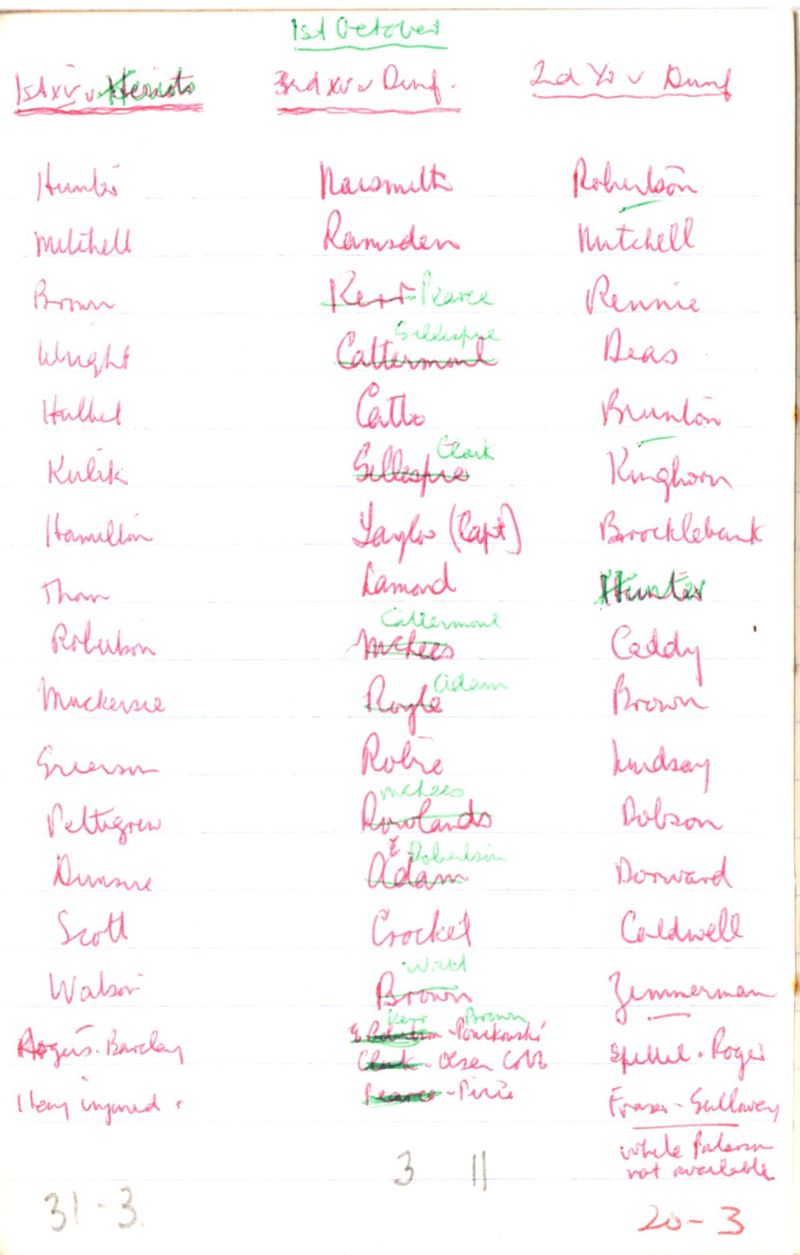 1st October
1st XV v Heriots
3rd XV v Dunf.
2nd XV v Dunf
Hunter
Mitchell
Brown
Wright
Kulik
Hamilton
Thom
Robertson
Mackersie
Grierson
Pettigrew
Dunsire
Scott
Watson
Barclay
Henry injured.
31-3.
Naismith
Ramsden
Kerr Pearce
Gillespie
Cattermoul
Catto
Clark
Gillespie
Taylor (Capt)
Lamond
Cattermoul
McLees
Adam
Royle
Robie
McLees
Rowlands
E Robertson
Adam
Crocket
Watt
Brown
Kerr Brown
E Robertson - Ponikowski
Clark - Olsen Cobb
Pearce - Pirie
3 11
Robertson
Mitchell
Rennie
Deas
Brunton
Kinghorn
Brocklebank
Hunter
Caddy
Brown
Lindsay
Dobson
Dorward
Caldwell
Zimmerman
Spittel - Roger
Fraser - Galloway
White Paterson
not available
20-3